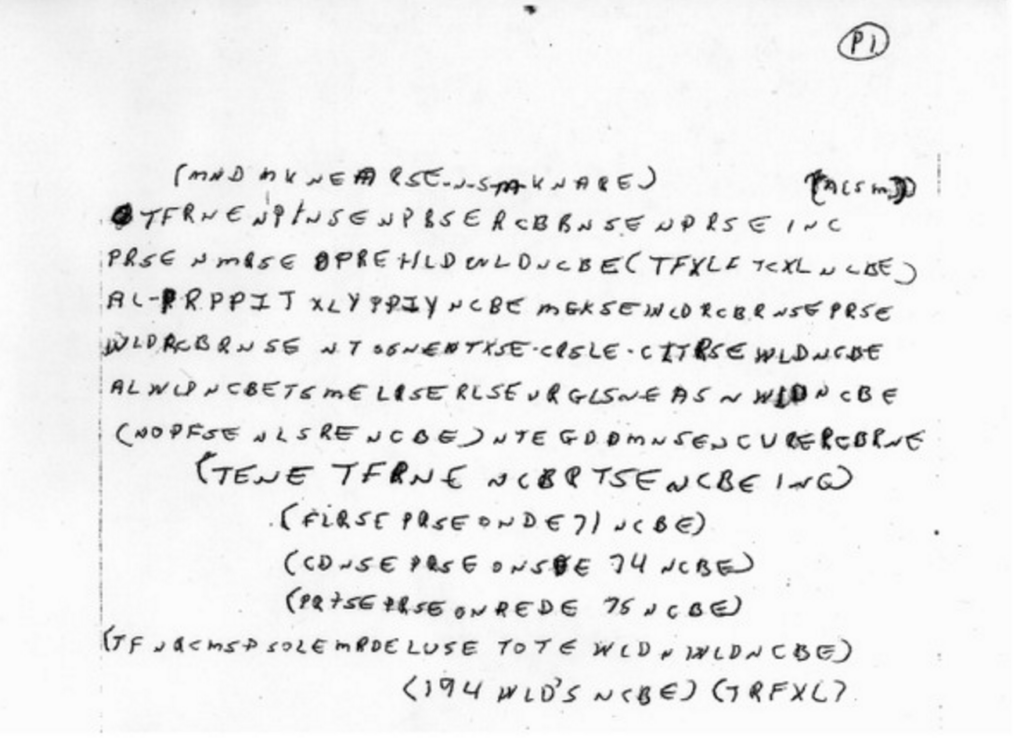 P1
(MND MKNEARSE-N-S-M-KNARE) (ACSM)
TFRNENPTNSENPBSERCBBNSENPRSEINC
PRSENMRSEOPREHLDWLDNCBE(TFXLF TCXLNCBE)
AL-PRPPIT XLYPPIYNCBE MGKSEWLDRCBRNSEPRSE
WLDRCBRNSE NTSGNENTXSE-CRSLE-CITRSEWLDNCBE
ALWLDNCBETSMELRSERLSEURGLSNEASNWLDNCBE
(NOPFSENLSRENCBE)NTEGDDMNSENCURERCBRNE
(TENE TFRNE NCBRTSENCBEING)
(FLRSE PRSEONDE71NCBE)
(CDNSE PRSEONSDE 74 NCBE)
(PRTSEPRSEONREDE 75NCBE)
(TFNRCMSPSOLEMRDELUSE TOTE WLDNWLDNCBE)
(194 WLD'S NCBE) (TRFXL)